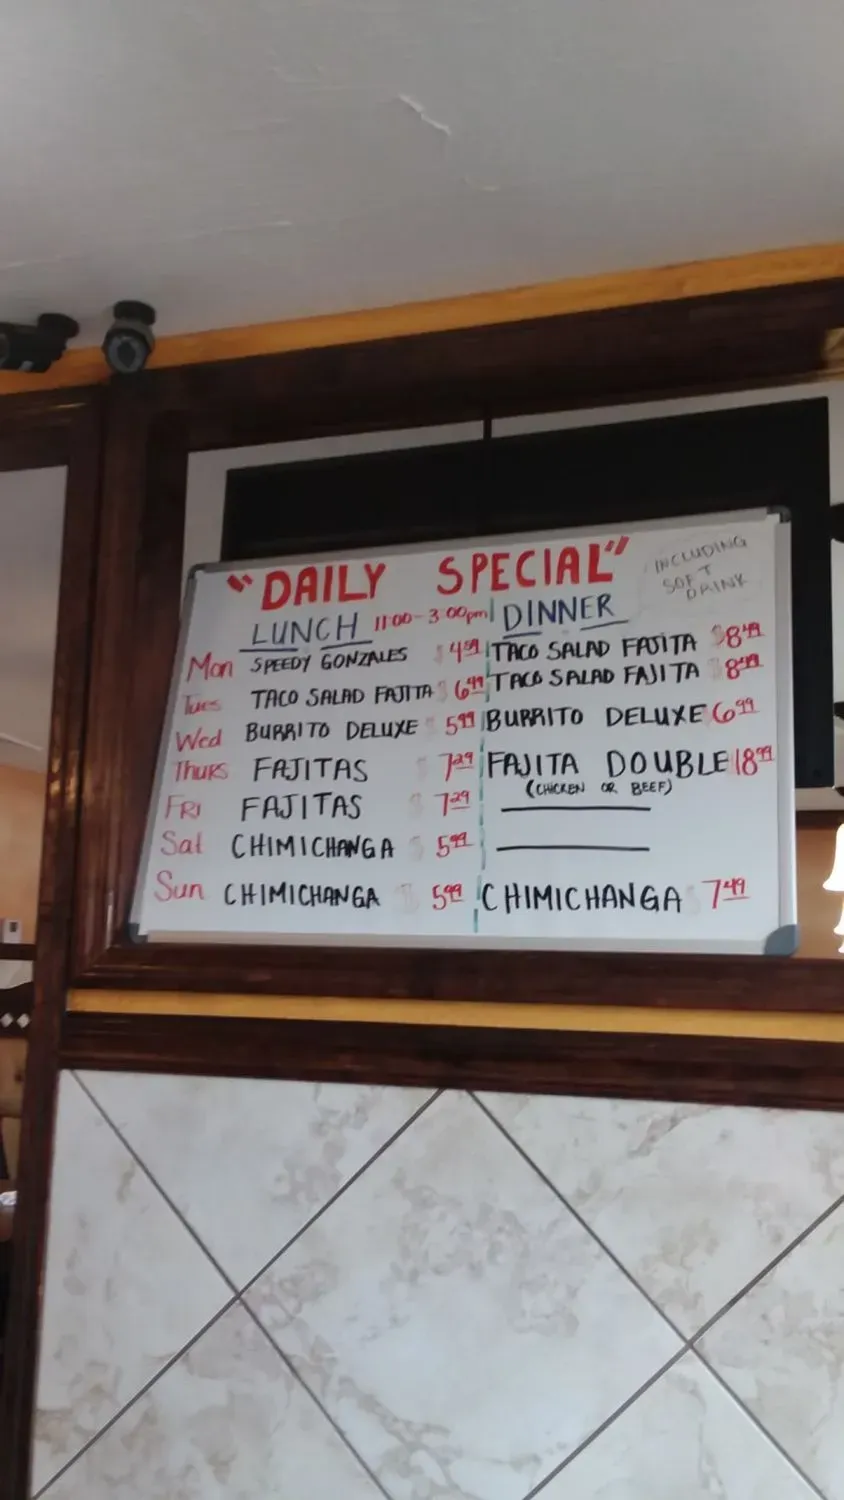 "DAILY SPECIAL"
INCLUDING
SOFT
DRINK
LUNCH 11:00-3:00pm DINNER
Mon SPEEDY GONZALES $ TACO SALAD FAJITA $8.49
Tues TACO SALAD FAJITA $6.49 TACO SALAD FAJITA $8.49
Wed BURRITO DELUXE $5.99 BURRITO DELUXE 6.99
Thurs FAJITAS $7.29 FAJITA DOUBLE 18.99
(CHICKEN OR BEEF)
FRI FAJITAS $7.29
Sat CHIMICHANGA $5.99
Sun CHIMICHANGA $5.99 CHIMICHANGA $7.49